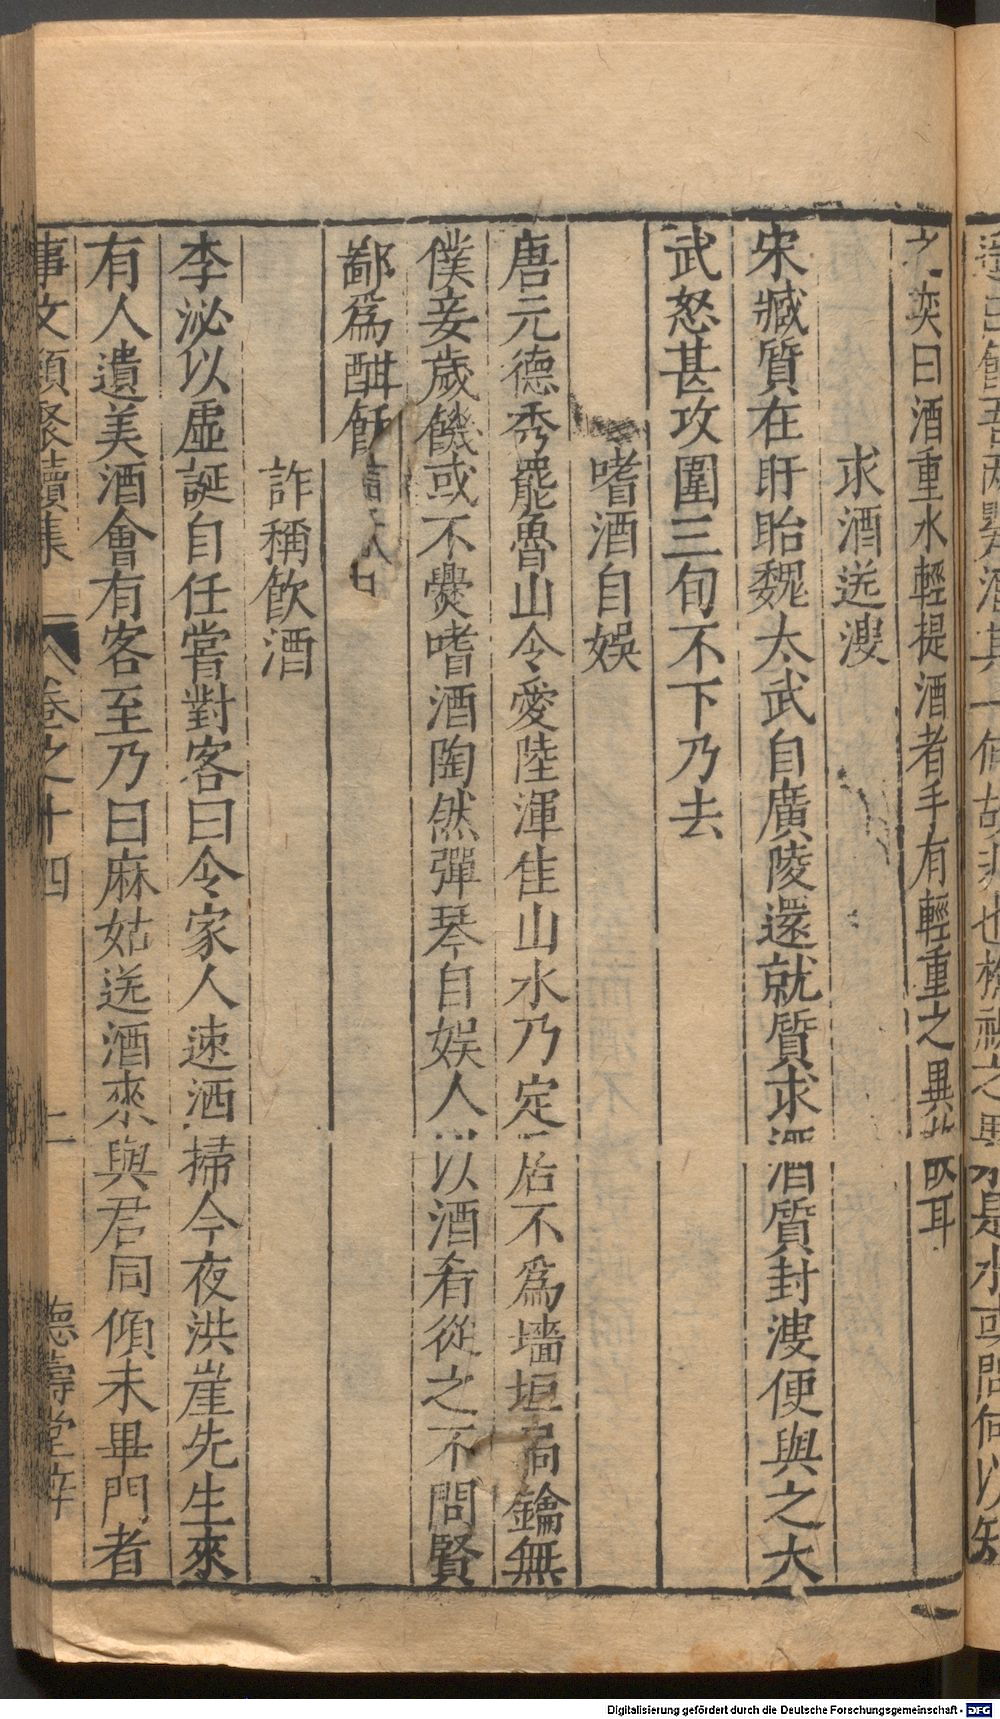 之奕曰酒重水輕提酒者手有輕重之異耳
求酒送溲
宋臧質在盱眙魏太武自廣陵還就質求酒質封溲便與之太
武怒甚攻圍三旬不下乃去
嗜酒自娛
唐元德秀罷魯山令愛陸渾佳山水乃定居不爲墻垣扃鑰無
僕妾歲饑或不爨嗜酒陶然彈琴自娛人以酒肴從之不問賢
鄙爲酣飫
詐稱飲酒
李泌以虛誕自任嘗對客曰令家人速洒掃今夜洪崖先生來
有人遺美酒會有客至乃曰麻姑送酒來與君同傾未畢門者
事文類聚續集 卷之十四 德壽堂梓
Digitalisierung gefördert durch die Deutsche Forschungsgemeinschaft - DFG